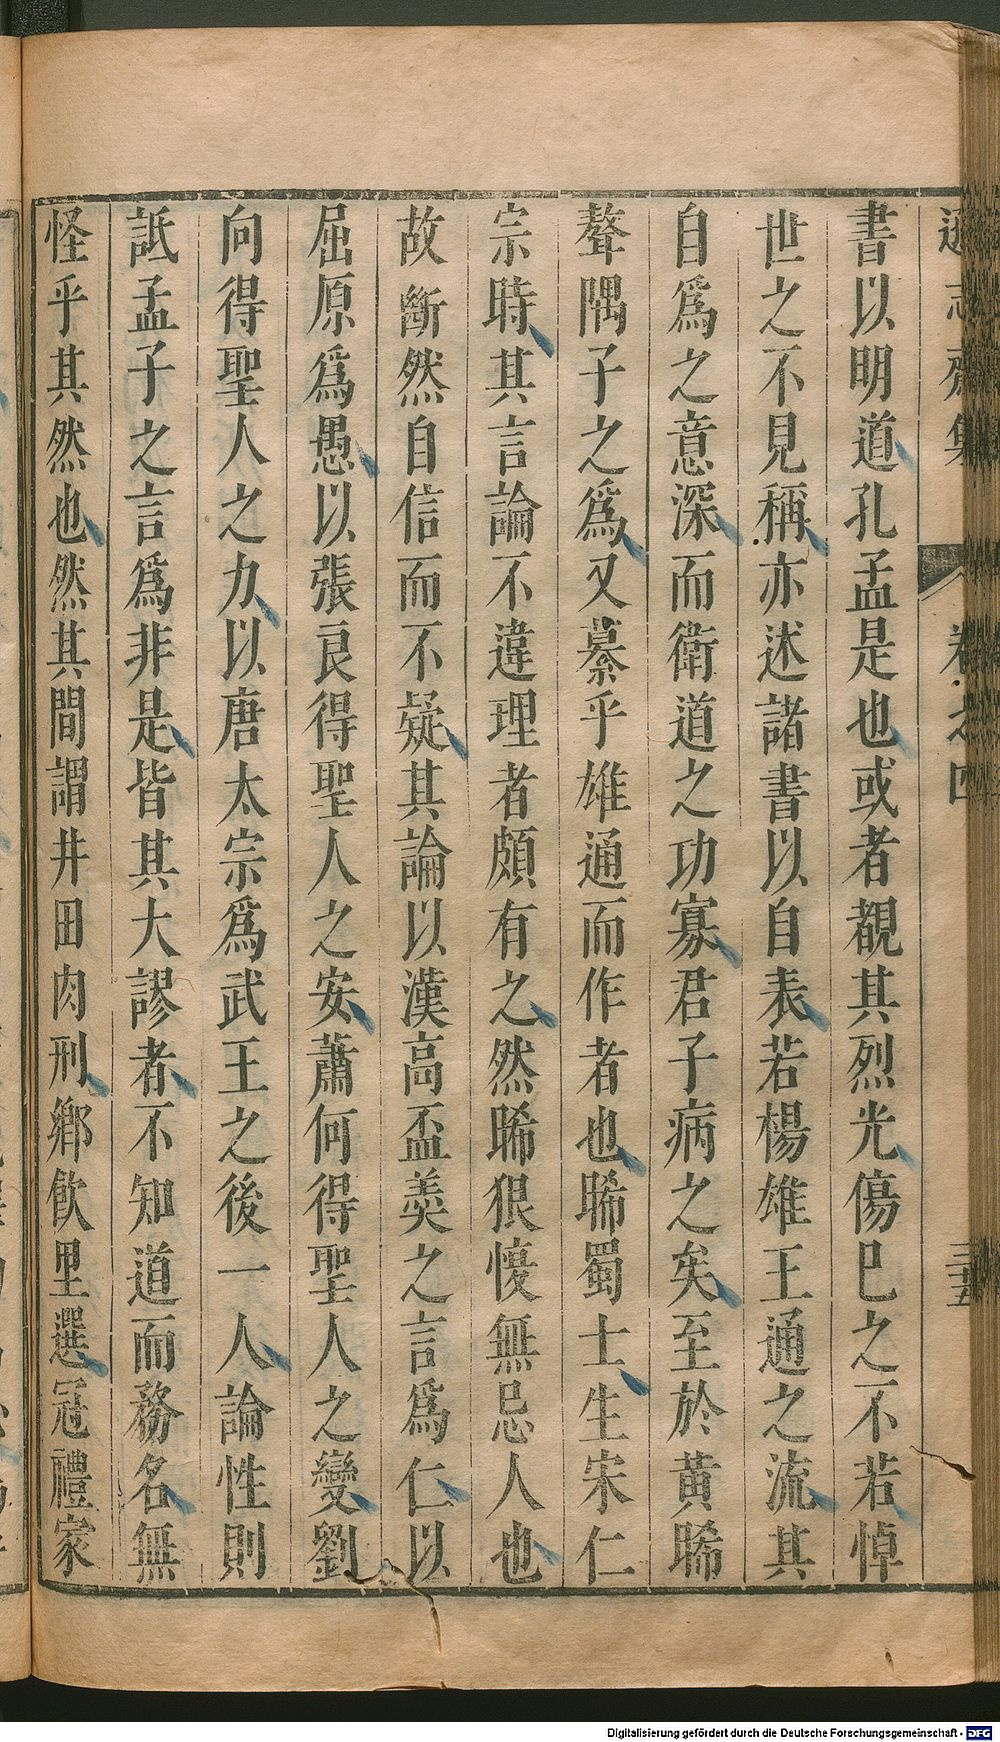 遜志齋集
卷之四
三十五
書以明道孔孟是也或者覩其烈光傷巳之不若悼
世之不見稱亦述諸書以自表若楊雄王通之流其
自爲之意深而衛道之功寡君子病之矣至於黃晞
聱隅子之爲又慕乎雄通而作者也晞蜀士生宋仁
宗時其言論不違理者頗有之然晞狠愎無忌人也
故斷然自信而不疑其論以漢高盃羹之言爲仁以
屈原爲愚以張良得聖人之安蕭何得聖人之變劉
向得聖人之力以唐太宗爲武王之後一人論性則
詆孟子之言爲非是皆其大謬者不知道而務名無
怪乎其然也然其間謂井田肉刑鄉飲里選冠禮家
Digitalisierung gefördert durch die Deutsche Forschungsgemeinschaft - DFG